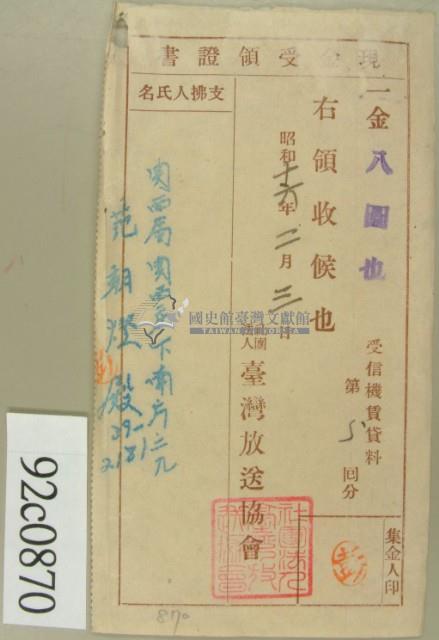 現金受領證書
一金八圓也
受信機賃貸料
第5回分
集金人印
右領收候也
昭和十六年二月三日
社團法人 臺灣放送協會
支拂人氏名
關西局關西庄下南片三九
范朝燈殿
國史館臺灣文獻館
TAIWAN HISTORICA
92c0870
870